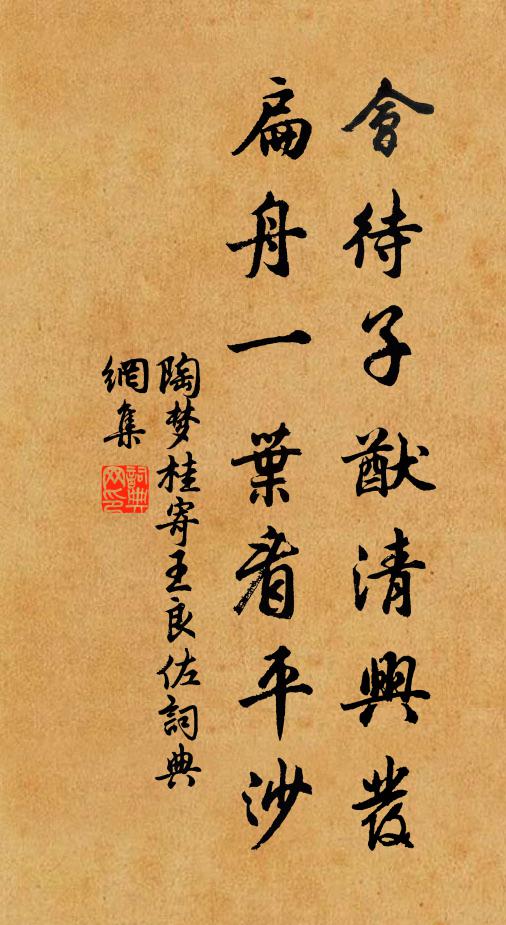 會待子猷清興發
扁舟一葉看平沙
陶梦桂寄王良佐詞典
網集
詞典
网印